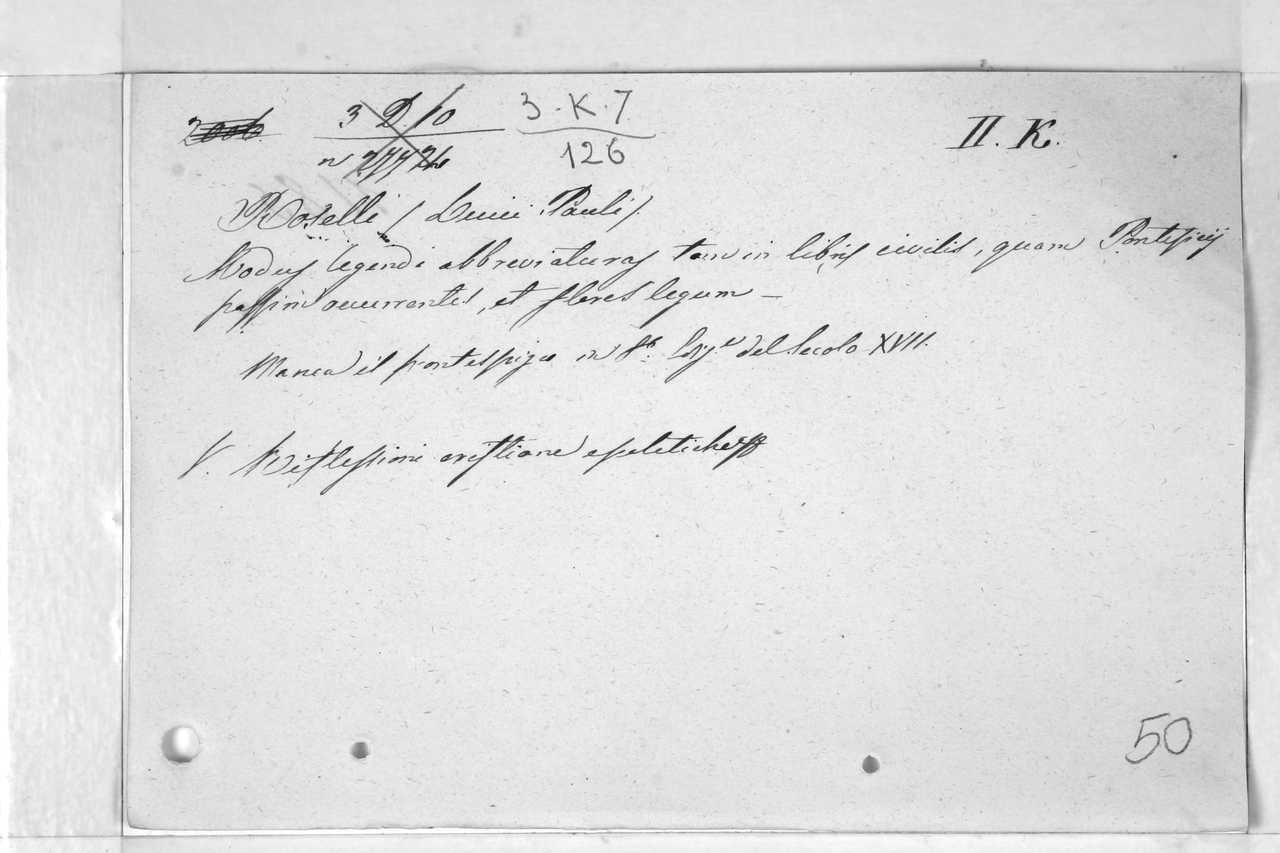 3 D 10 3 . K . 7 II . K .
126
Roselli / Lucii Pauli /.
Modus legendi abbreviaturas tam in libris civilis, quam Pontificij
passim occurrentes, et flores legum —
Manca il frontespizio in 8.º del Secolo XVII.
V. Riflessioni cristiane e politiche
50